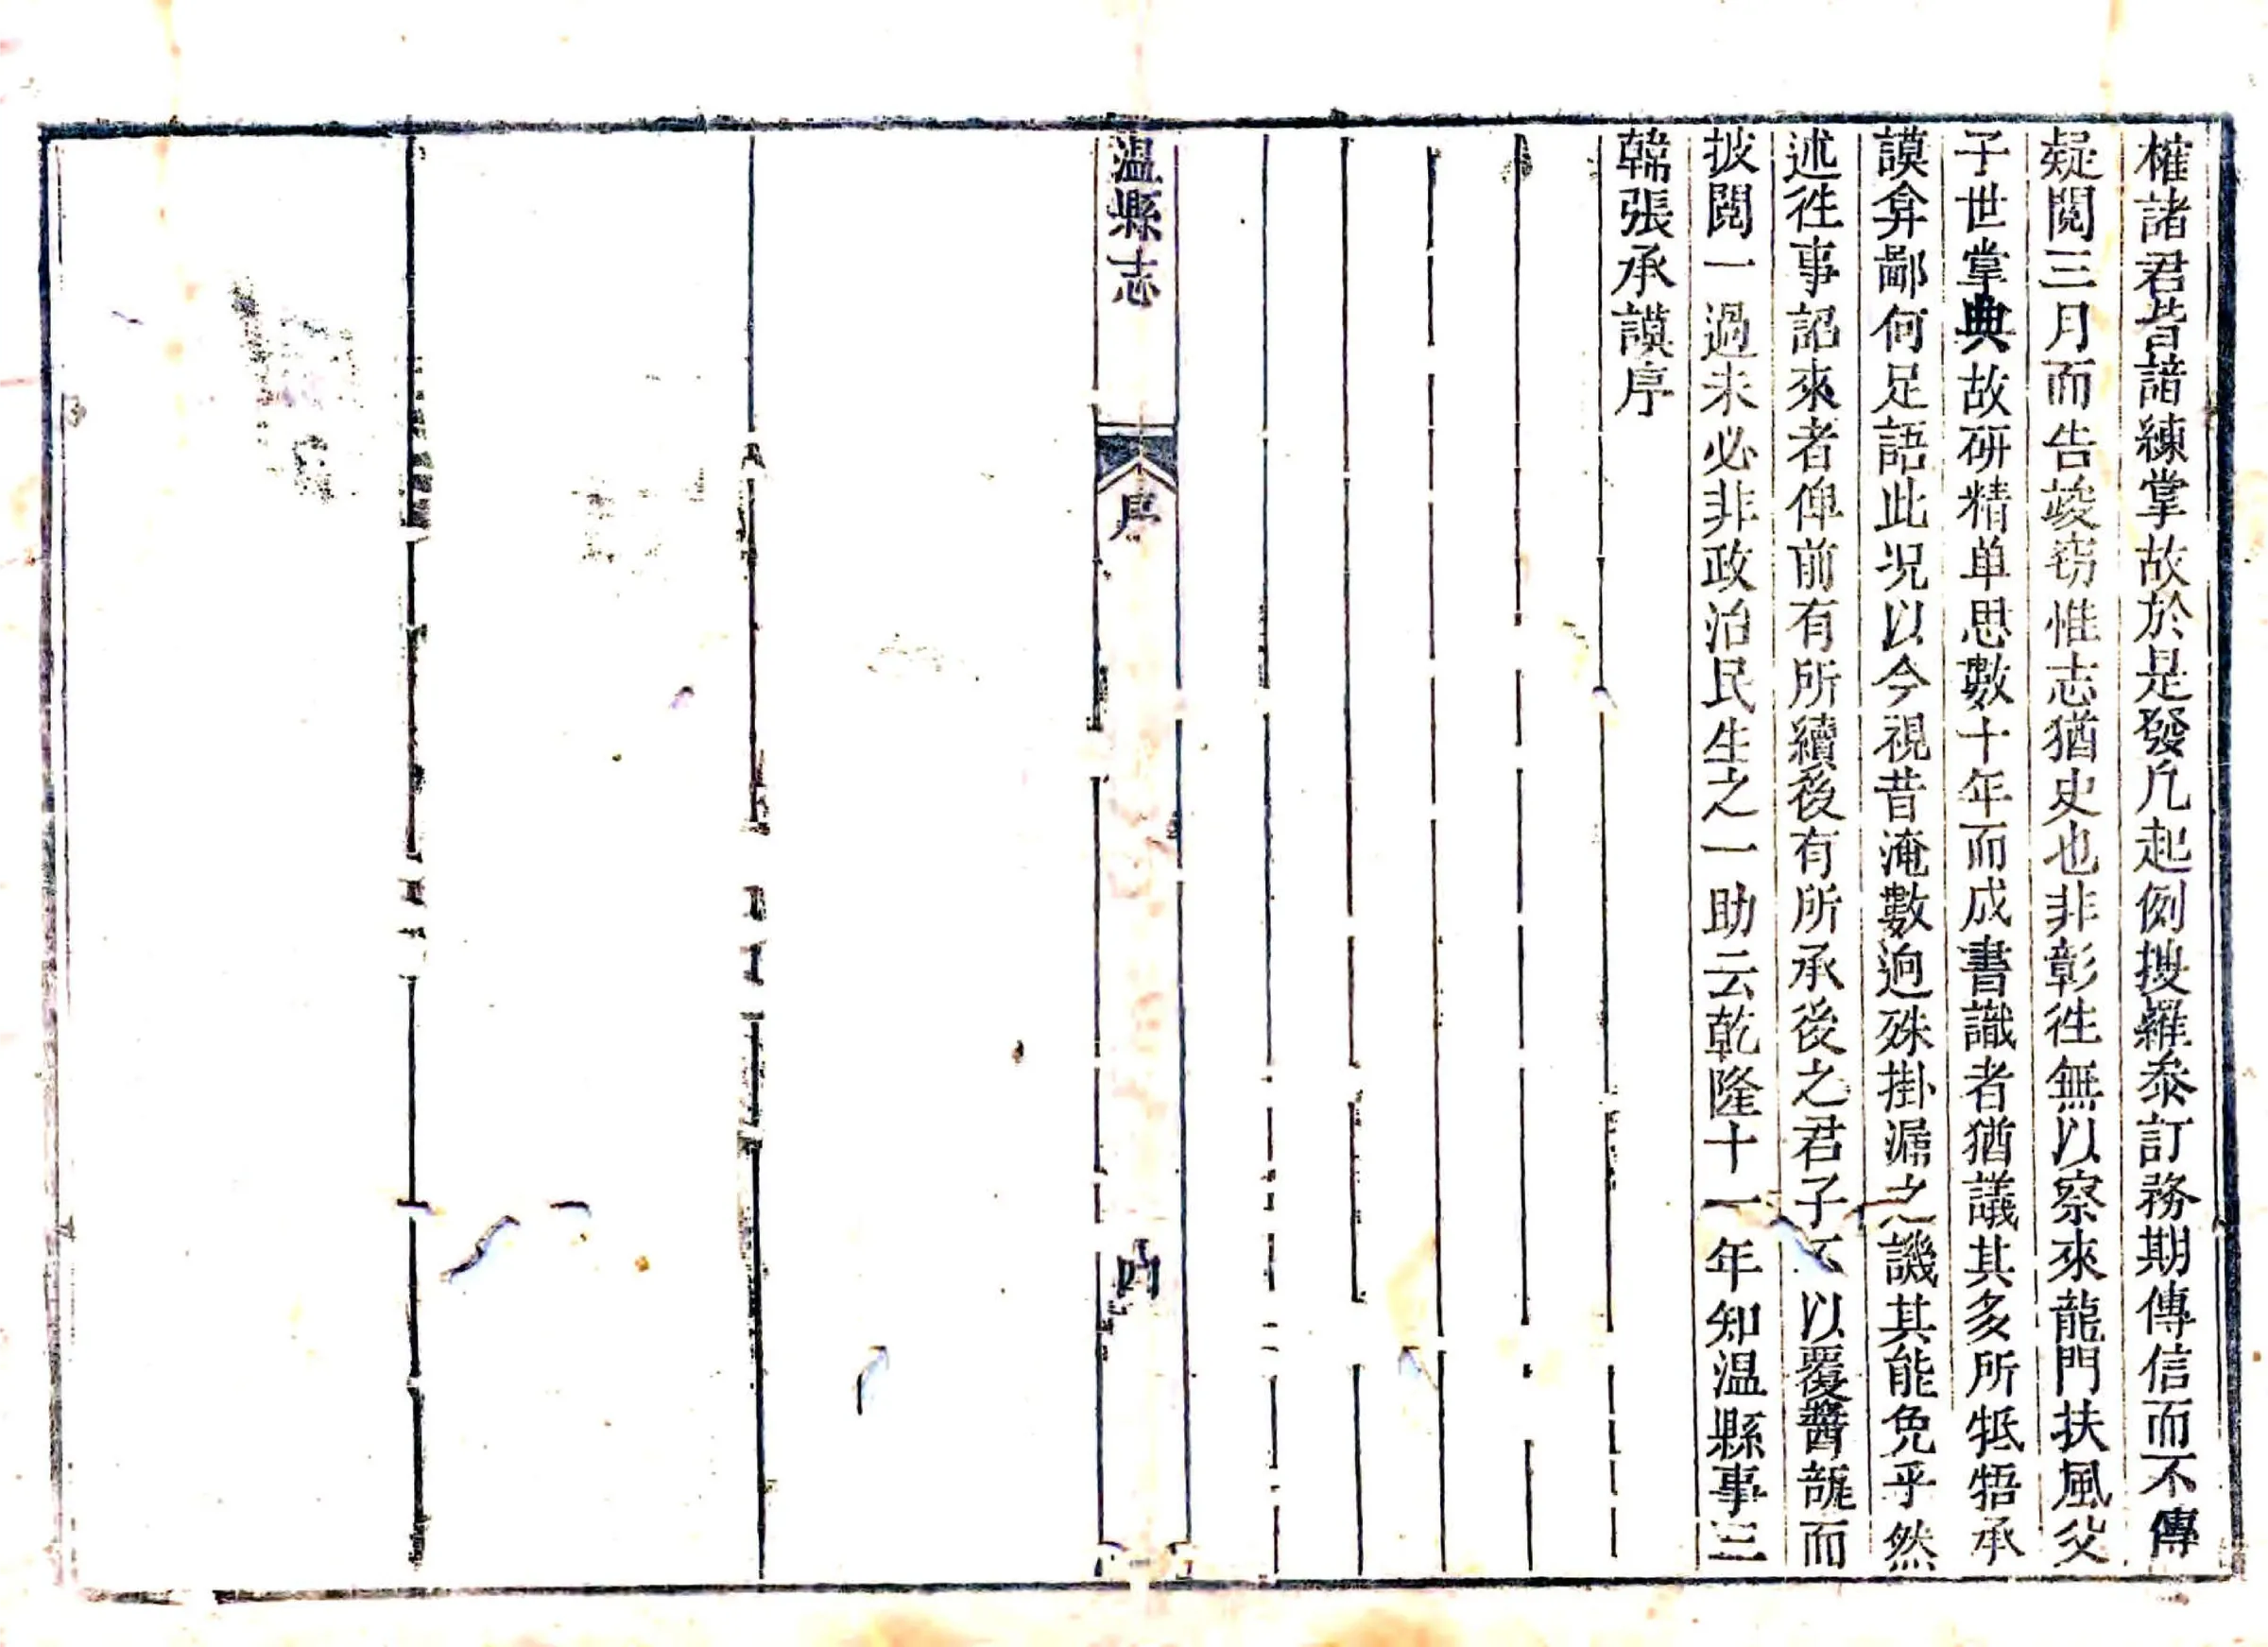 權諸君皆諳練掌故於是發凡起例搜羅叅訂務期傳信而不傳
疑閱三月而告竣竊惟志猶史也非彰徃無以察來龍門扶風父
子世掌典故研精单思數十年而成書識者猶議其多所牴牾承
謨弇鄙何足語此况以今視昔淹數逈殊掛漏之譏其能免乎然
述徃事詔來者俾前有所續後有所承後之君子不以覆醬瓿而
披閱一過未必非政治民生之一助云乾隆十一年知温縣事三
韓張承謨序
温縣志
序
四